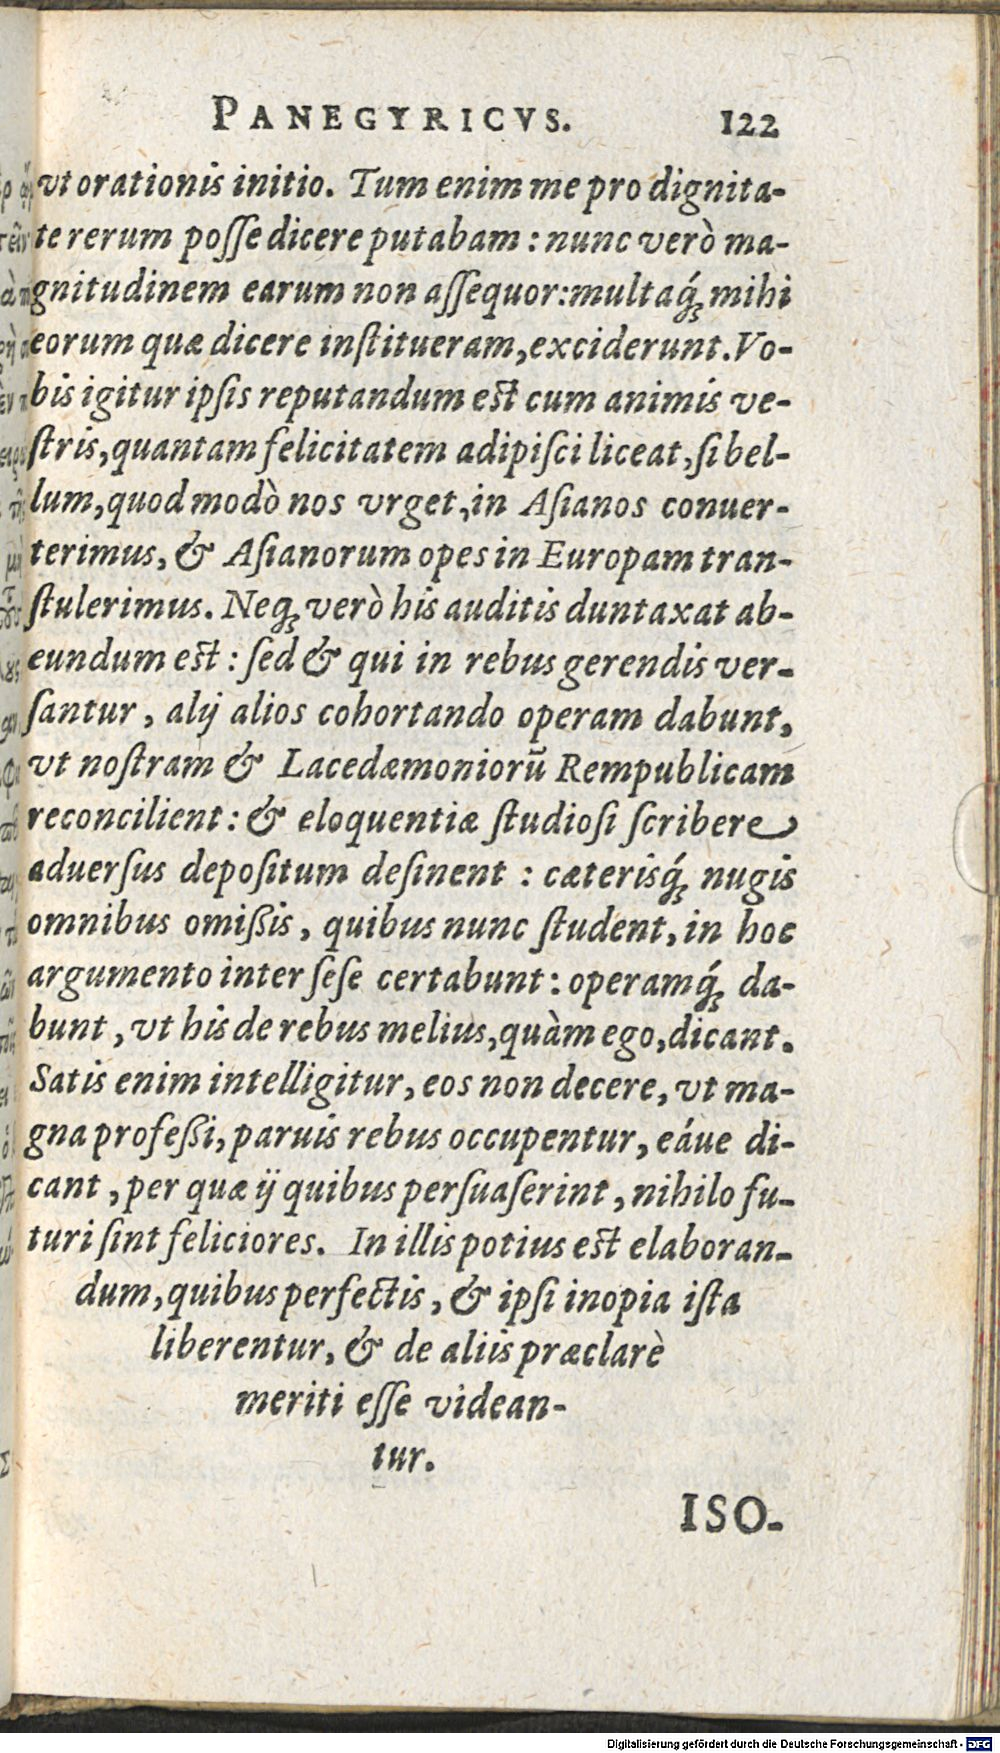 PANEGYRICVS. 122
vt orationis initio. Tum enim me pro dignita-
te rerum poſſe dicere putabam : nunc verò ma-
gnitudinem earum non aſſequor:multaq́ꝫ mihi
eorum quæ dicere inſtitueram,exciderunt.Vo-
bis igitur ipſis reputandum eſt cum animis ve-
ſtris,quantam felicitatem adipiſci liceat,ſi bel-
lum,quod modò nos vrget,in Aſianos conuer-
terimus, & Aſianorum opes in Europam tran-
ſtulerimus. Neqꝫ verò his auditis duntaxat ab-
eundum eſt : ſed & qui in rebus gerendis ver-
ſantur , alij alios cohortando operam dabunt,
vt noſtram & Lacedæmoniorū Rempublicam
reconcilient : & eloquentiæ ſtudioſi ſcribere
aduerſus depoſitum deſinent : cæterisq́ꝫ nugis
omnibus omißis , quibus nunc ſtudent, in hoc
argumento inter ſeſe certabunt : operamq́ꝫ da-
bunt , vt his de rebus melius,quàm ego,dicant.
Satis enim intelligitur, eos non decere, vt ma-
gna profeßi, paruis rebus occupentur, eáue di-
cant , per quæ ij quibus perſuaſerint , nihilo fu-
turi ſint feliciores. In illis potius eſt elaboran-
dum,quibus perfectis , & ipſi inopia iſta
liberentur, & de aliis præclarè
meriti eſſe videan-
tur.
ISO-
Digitalisierung gefördert durch die Deutsche Forschungsgemeinschaft - DFG